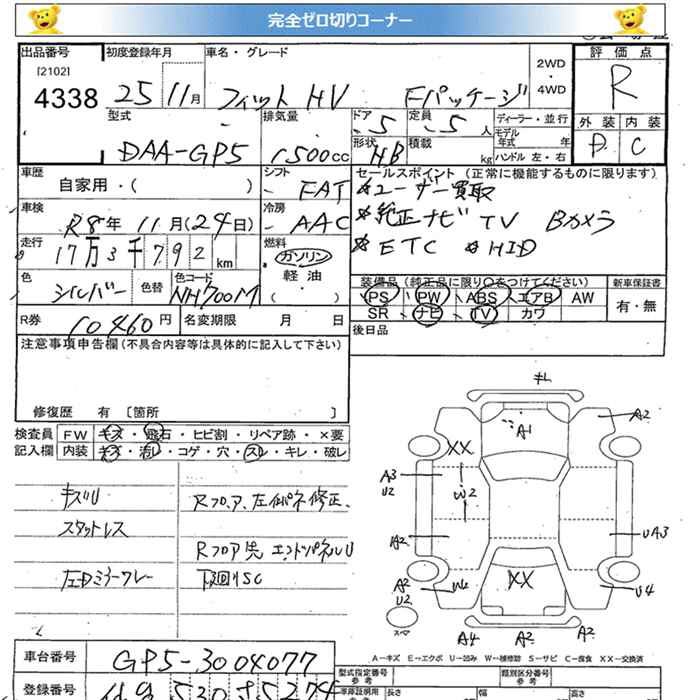 完全ゼロ切りコーナー
出品番号 初度登録年月 車名・グレード 2WD・4WD 評価点
[2102]
4338 25 11月 フィット HV Fパッケージ R
型式 排気量 ドア 定員 ディーラー・並行 外装 内装
DAA-GP5 1500cc 5 5人 モデル年式 年 D C
形状 積載 kg ハンドル 左・右
HB
車歴 シフト セールスポイント (正常に機能するものに限ります)
自家用・( ) FAT *ユーザー買取
車検 冷房 *純正ナビ TV Bカメラ
R8年 11月(24日) AAC *ETC *HID
走行 燃料
17万3千792km ガソリン
軽油
( )
色 色替 色コード 装備品 (純正品に限り○をつけてください) 新車保証書
シルバー NH700M PS PW ABS エアB AW 有・無
SR ナビ TV カワ
R券 10460円 名変期限 月 日 後日品
注意事項申告欄 (不具合内容等は具体的に記入して下さい)
修復歴 有 [箇所 ]
検査員 FW キズ・飛石・ヒビ割・リペア跡・×要
記入欄 内装 キズ・汚レ・コゲ・穴・スレ・キレ・破レ
キズU Rフロア、左
スタットレス
Rフロア先 エンドパネルU
左Dミラー 下廻りSC
キレ
A1
A2
XX
A3
U2
W2
A2
UA3
A2
U2
W4
XX
U4
スペア
A4 A2 A2
A-キズ E-エクボ U-凹み W-補修跡 S-サビ C-腐食 XX-交換済
車台番号 GP5-3004077
型式指定番号 参考 類別区分番号 参考
登録番号 530
長さ 幅 高さ